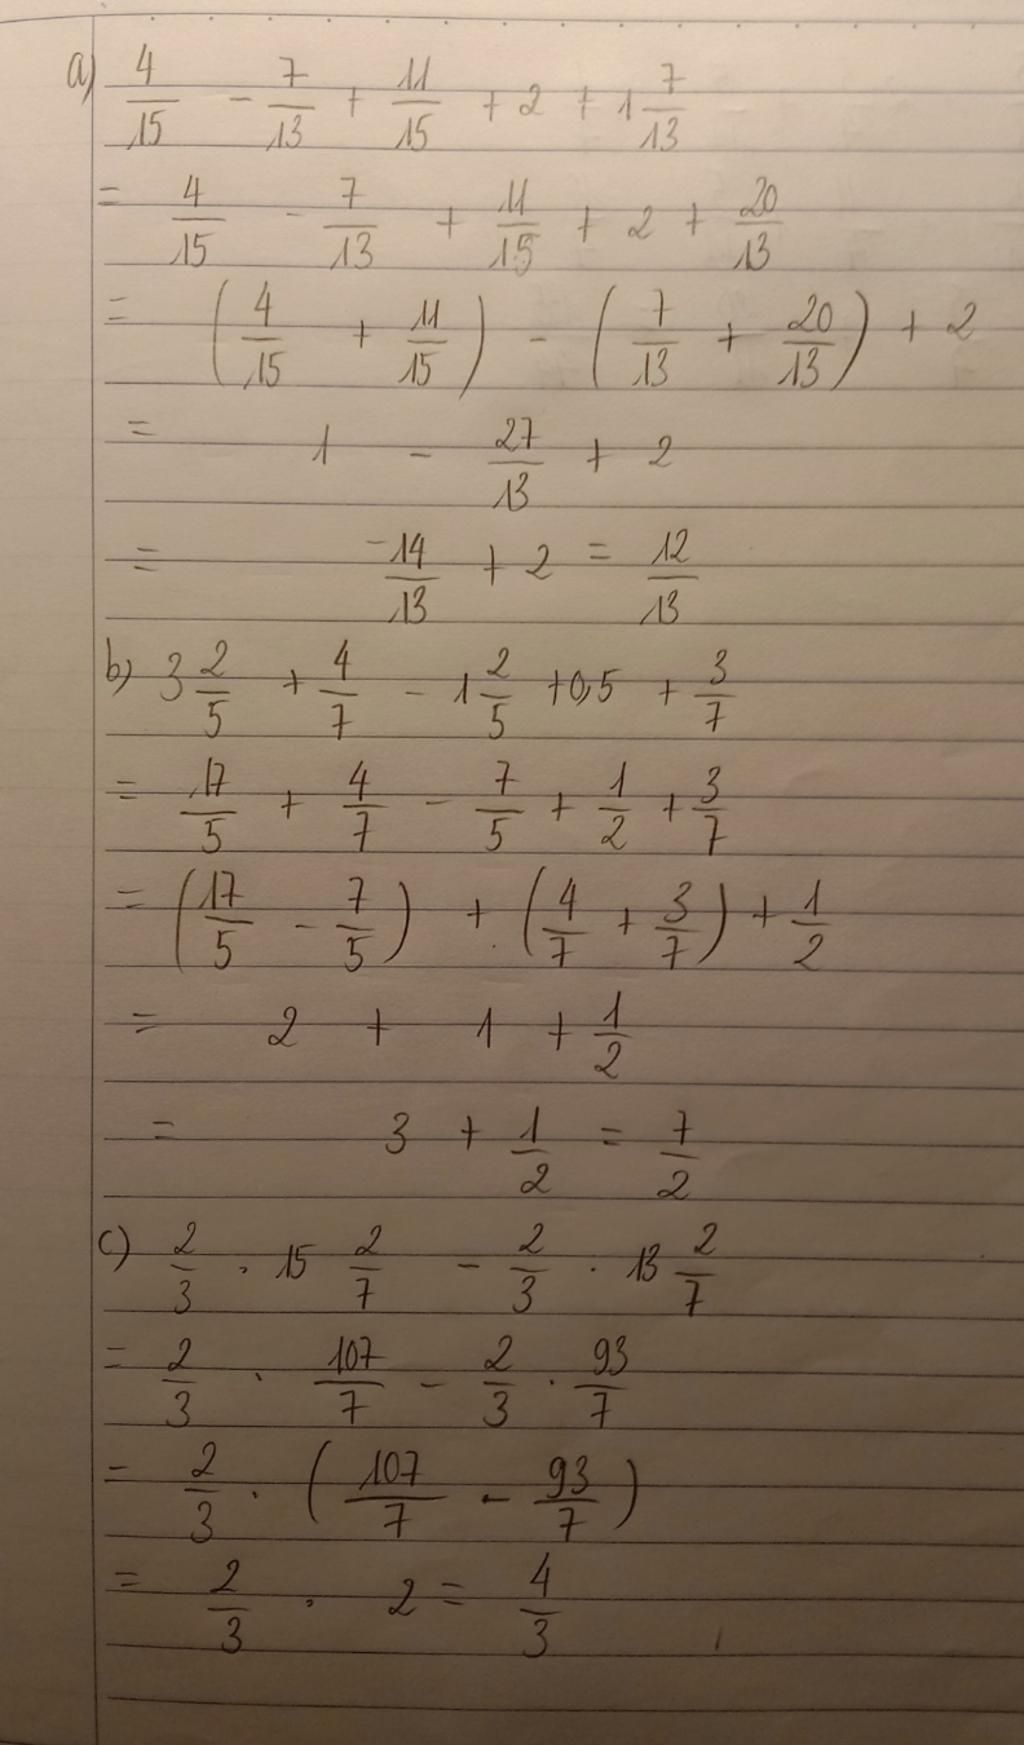 a) 4/15 - 7/13 + 11/15 + 2 + 1 7/13
= 4/15 - 7/13 + 11/15 + 2 + 20/13
= (4/15 + 11/15) - (7/13 + 20/13) + 2
= 1 - 27/13 + 2
= -14/13 + 2 = 12/13
b) 3 2/5 + 4/7 - 1 2/5 + 0,5 + 3/7
= 17/5 + 4/7 - 7/5 + 1/2 + 3/7
= (17/5 - 7/5) + (4/7 + 3/7) + 1/2
= 2 + 1 + 1/2
= 3 + 1/2 = 7/2
c) 2/3 . 15 2/7 - 2/3 . 13 2/7
= 2/3 . 107/7 - 2/3 . 93/7
= 2/3 . (107/7 - 93/7)
= 2/3 . 2 = 4/3